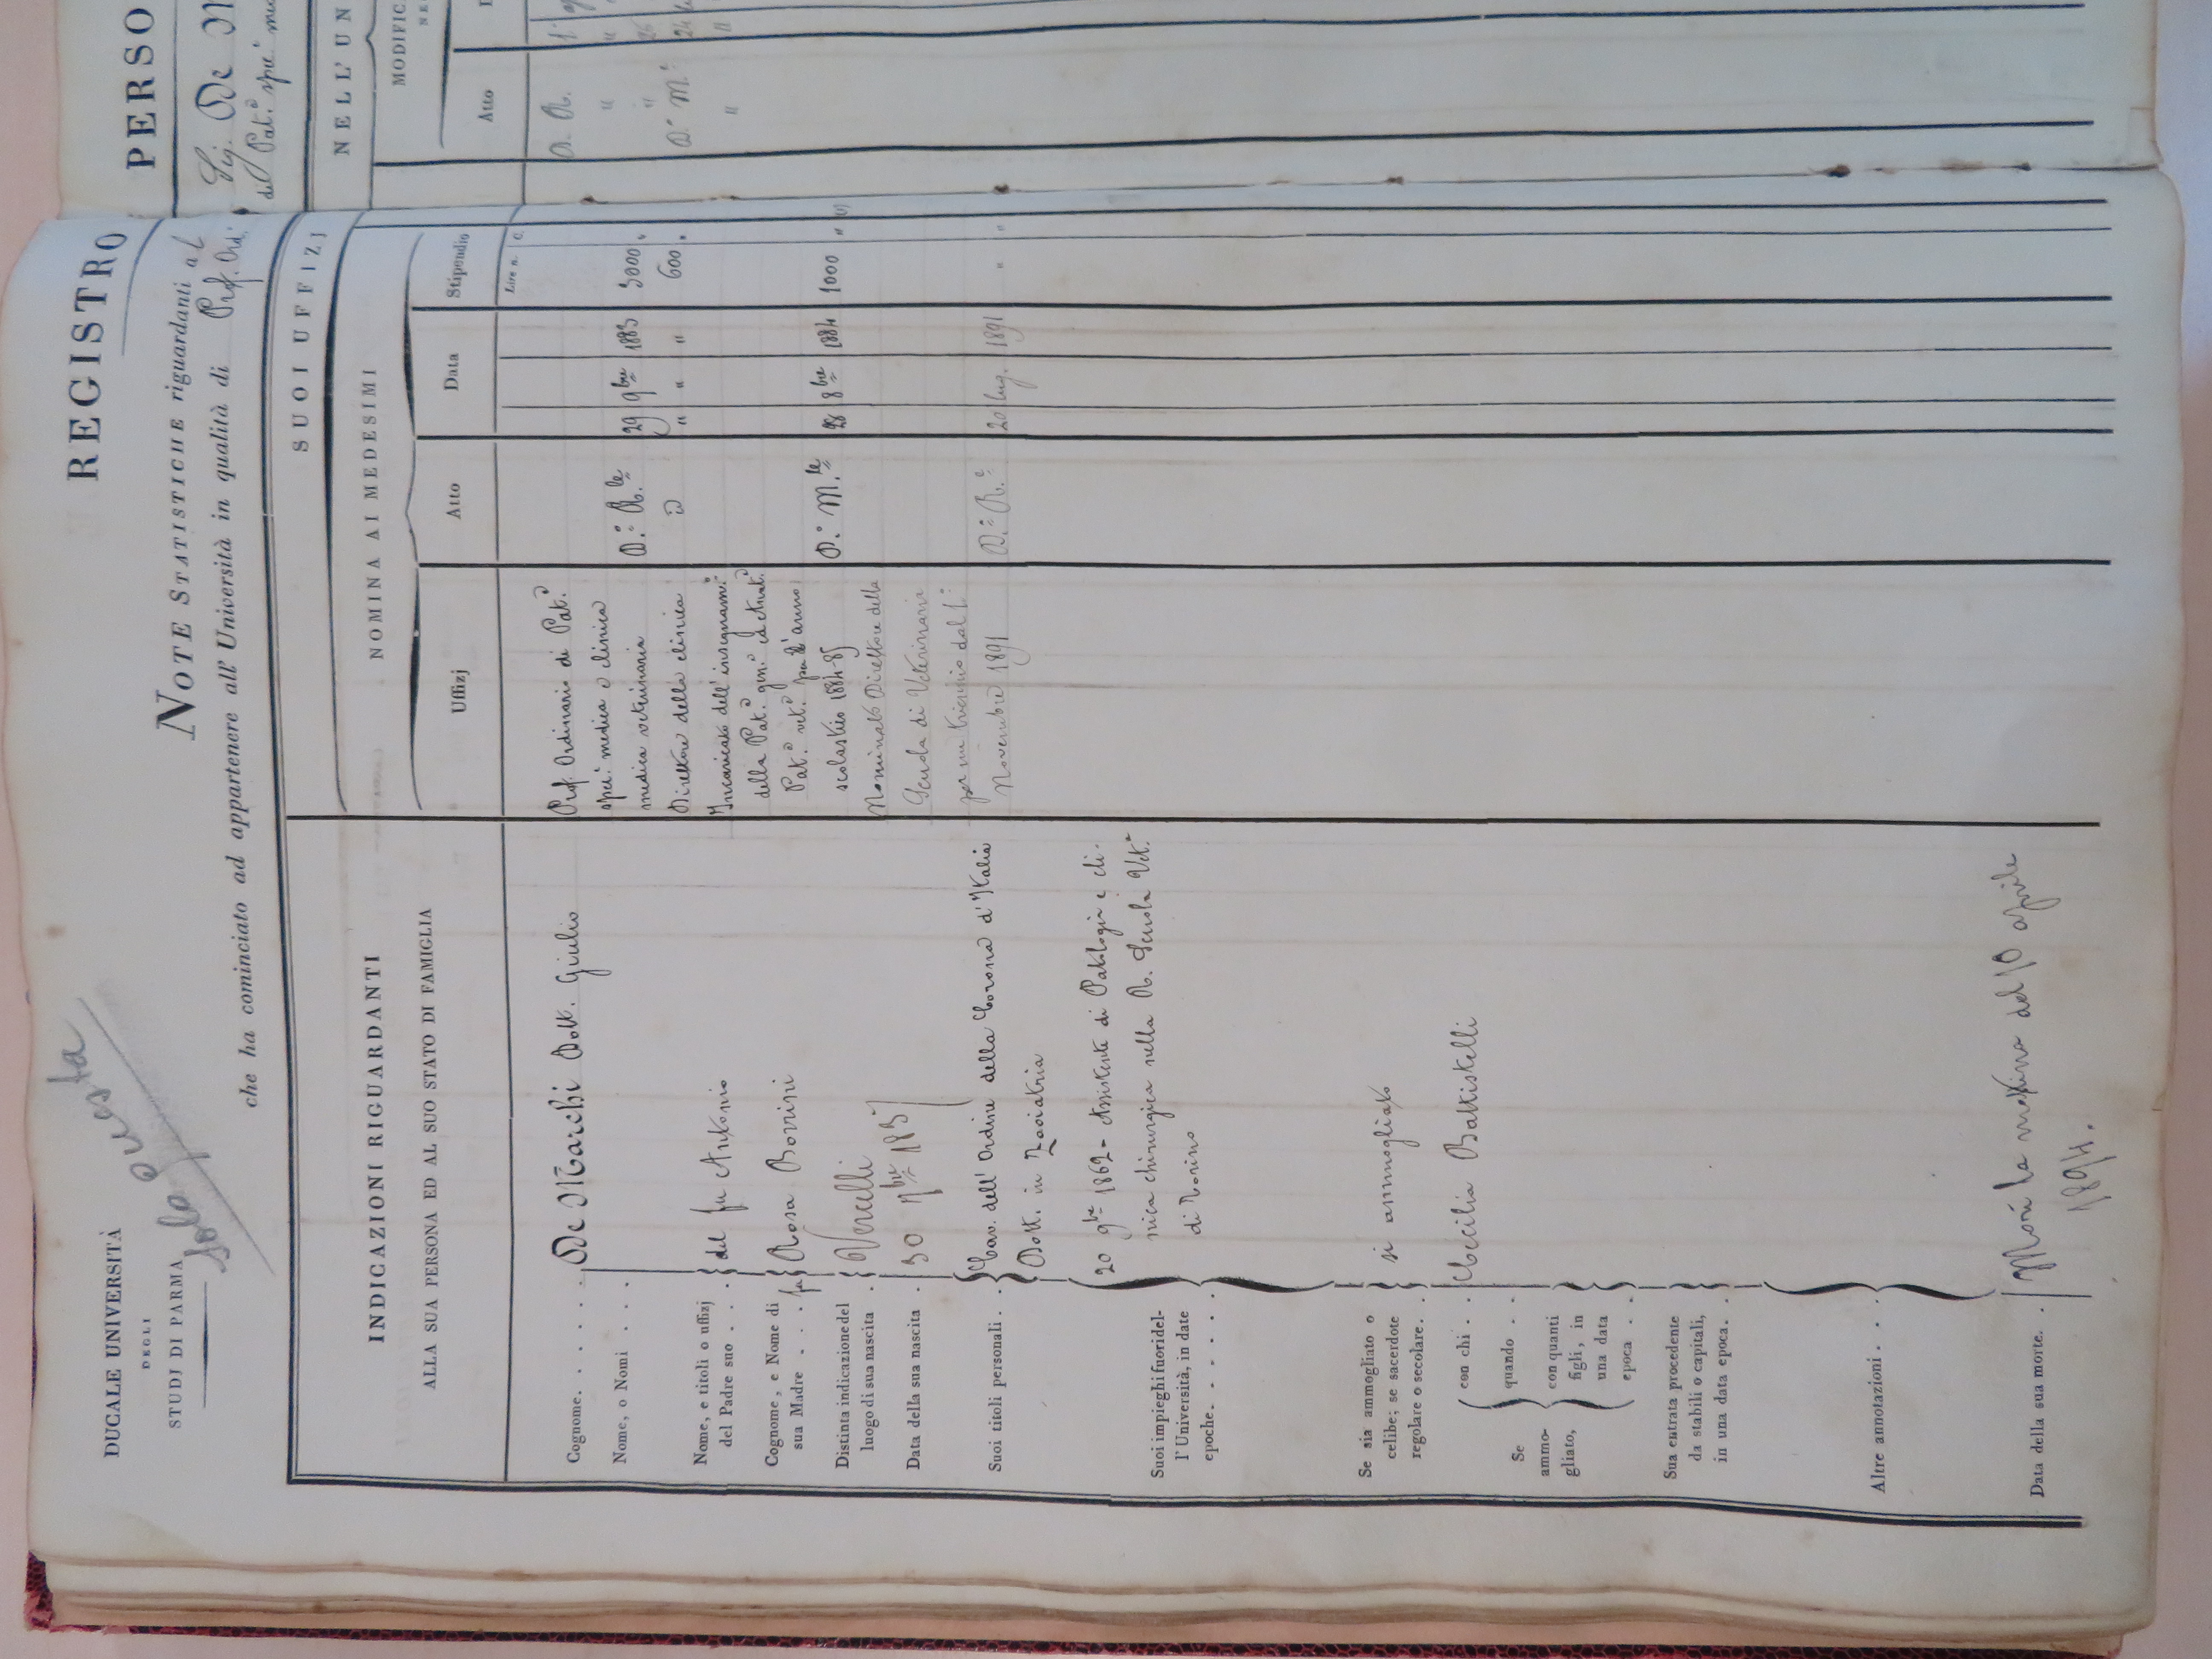 DUCALE UNIVERSITÀ
DEGLI
STUDJ DI PARMA
Solo Questa
REGISTRO
PERSO
NOTE STATISTICHE riguardanti al
Sig. De M
che ha cominciato ad appartenere all'Università in qualità di Prof. Ord.
del Pat.a spe.
INDICAZIONI RIGUARDANTI
ALLA SUA PERSONA ED AL SUO STATO DI FAMIGLIA
SUOI UFFIZJ
NELL'UN
NOMINA AI MEDESIMI
MODIFIC
Uffizj
Atto
Data
Stipendio
Atto
Lire n. C.
Cognome. . . . . De Marchi Dott. Giulio
Nome, o Nomi . . .
Nome, e titoli o uffizj
del Padre suo . . . del fu Antonio
Cognome, e Nome di
sua Madre . . . fu Rosa Bovini
Distinta indicazione del
luogo di sua nascita . Vercelli
Data della sua nascita . 30 7bre 1837
Suoi titoli personali . . Cav. dell'Ordine della Corona d'Italia
Dott. in Zooiatria
Suoi impieghi fuori del-
l'Università, in date
epoche. . . . . .
20 9bre 1862 - Assistente di Patologia e cli-
nica chirurgica nella R. Scuola Vet.a
di Torino
Se sia ammogliato o
celibe; se sacerdote
regolare o secolare. . si ammogliato
Se
ammo-
gliato,
con chi . Cecilia Battistelli
quando . .
con quanti
figli, in
una data
epoca . .
Sua entrata procedente
da stabili o capitali,
in una data epoca. .
Altre annotazioni . . .
Data della sua morte. . Morì la mattina del 10 aprile
1894.
Prof. Ordinario di Pat.a
spec. medica e clinica
medica veterinaria D.o R.le 29 9bre 1883 3000 "
Direttore della clinica " " " 600 "
Incaricato dell'insegnam.o
della Pat.a gen. ed Anat.a
Pat.a vet.a per l'anno
scolastico 1884-85 D.o M.le 28 8bre 1884 1000 " (1)
Nominato Direttore della
Scuola di Veterinaria
per un triennio dal 1.o
Novembre 1891 D.o R.e 20 lug. 1891 " "
D. R.
" "
" 26
D.o M.e 24
" "